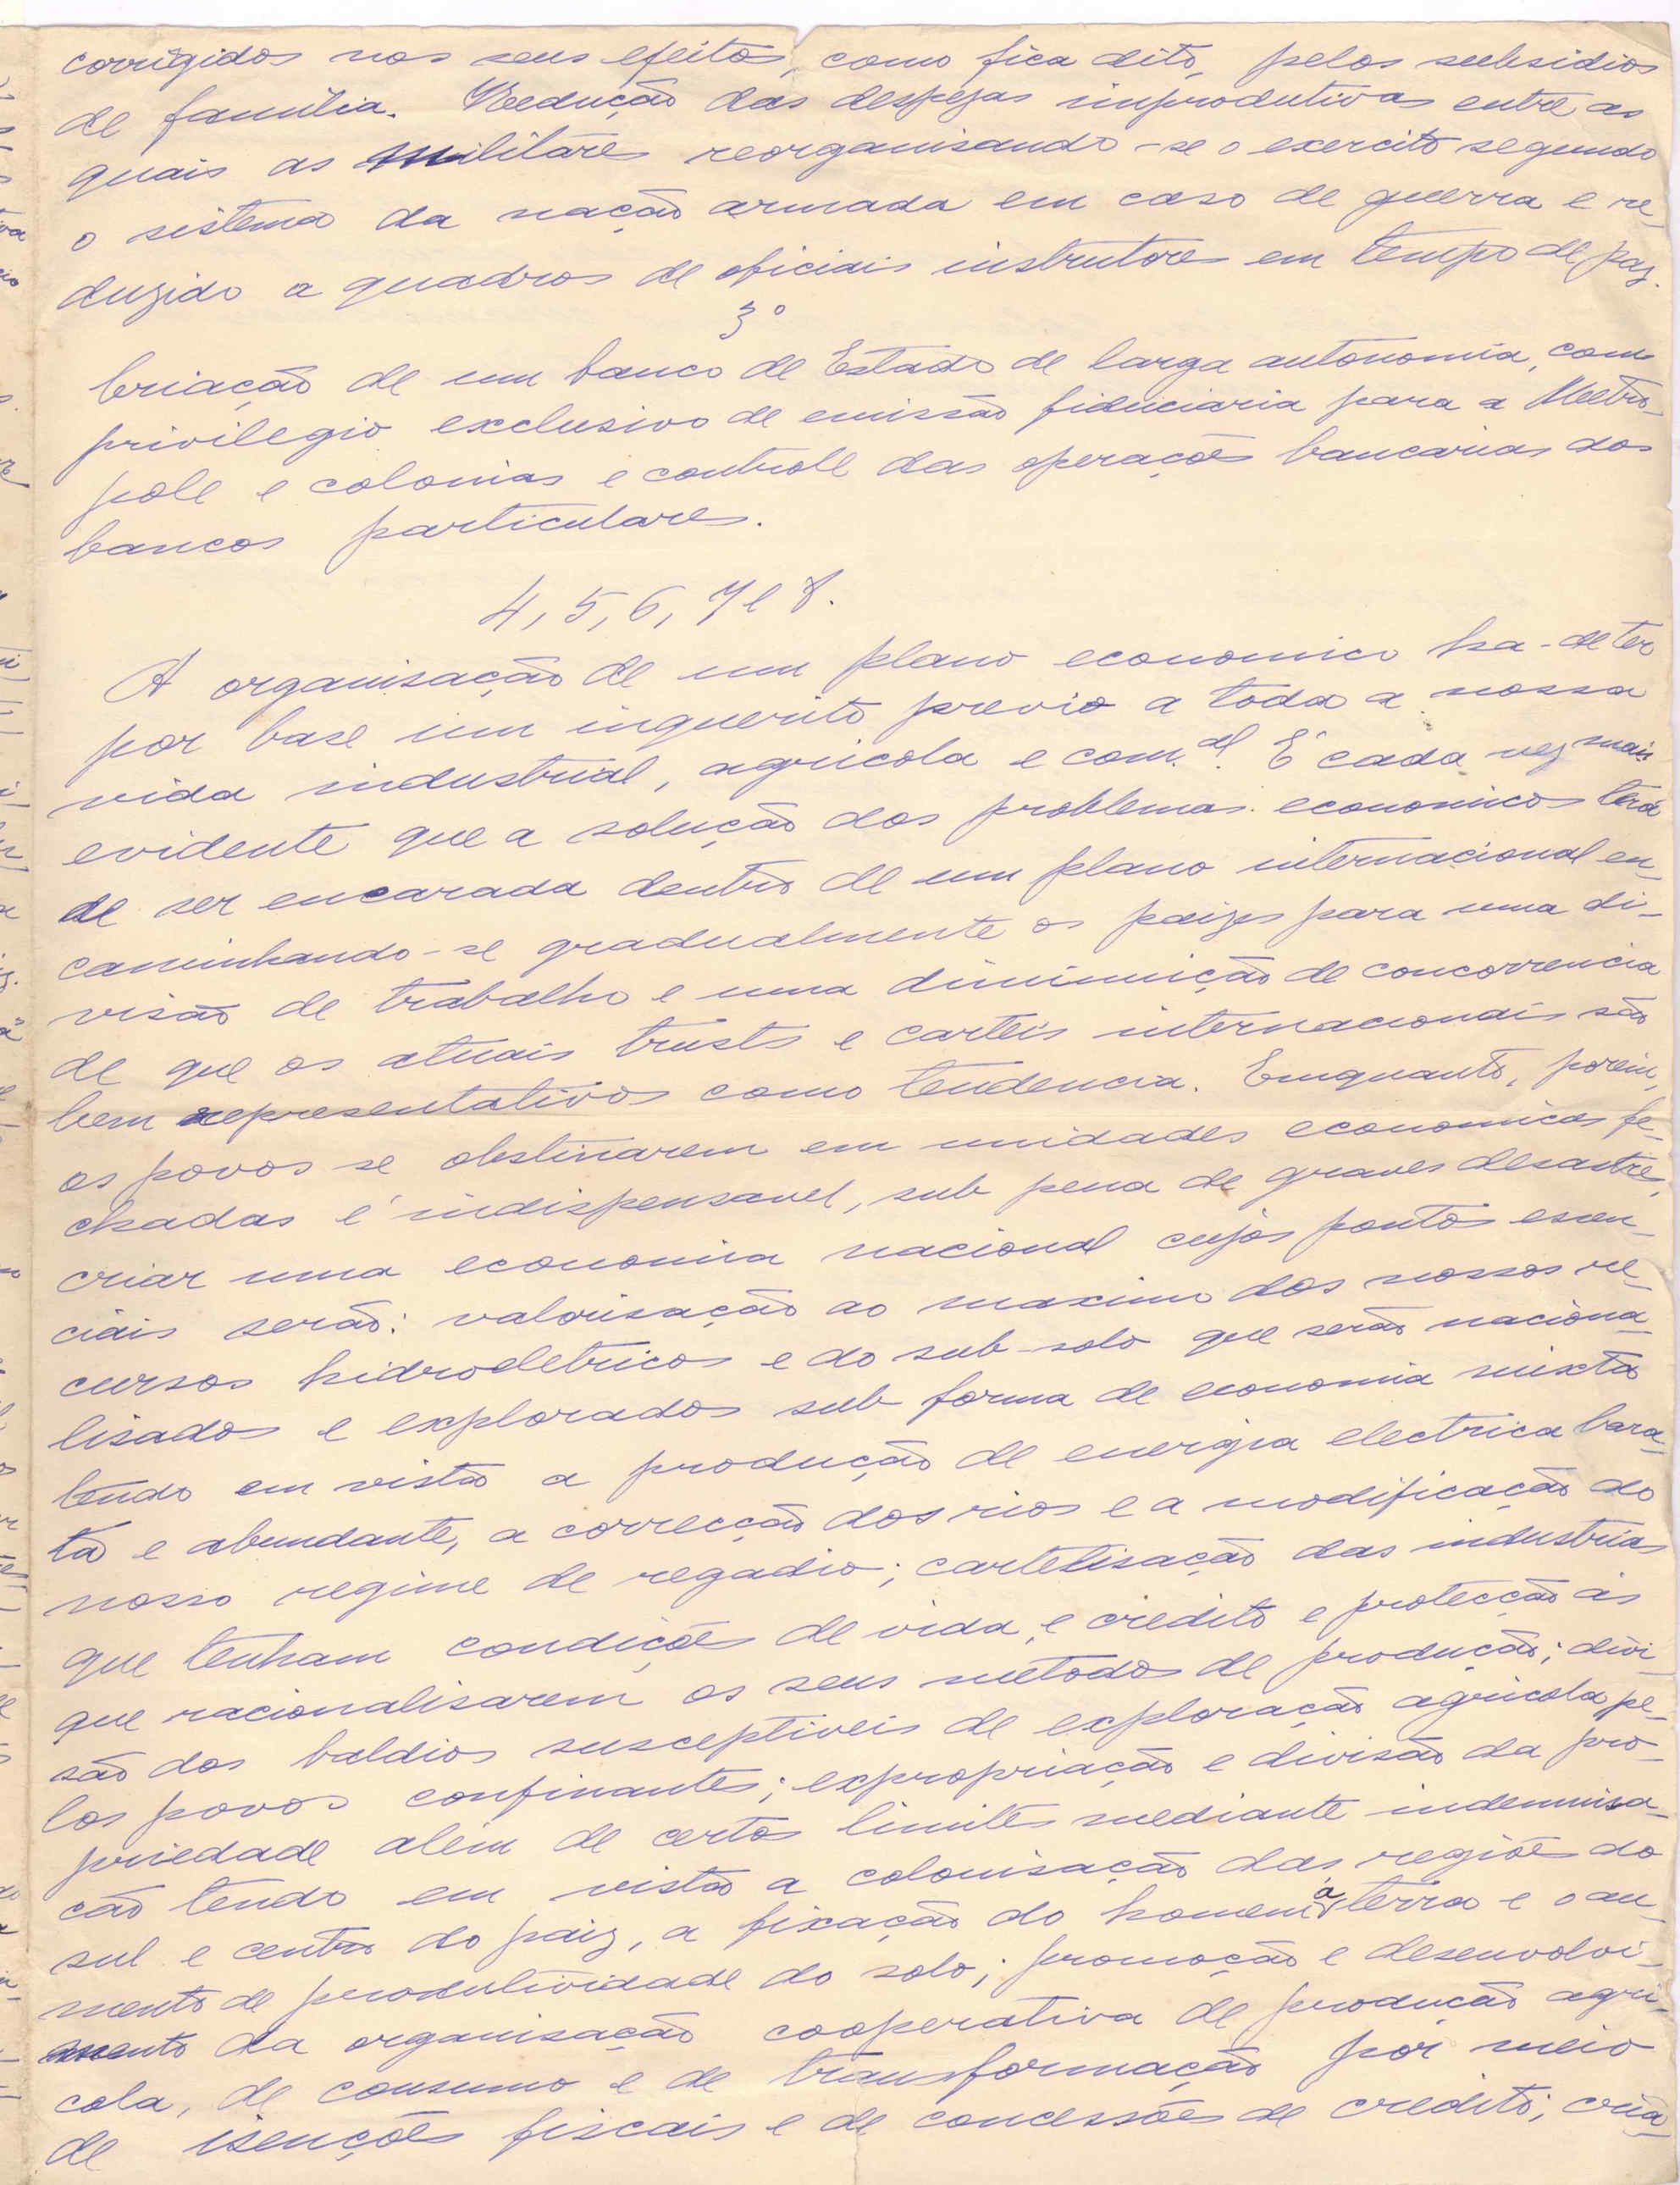 corrigidos nos seus efeitos, como fica dito, pelos subsidios
de familia. Reedução das despezas improdutivas entre as
quais as militares reorganisando-se o exercito segundo
o sistema da nação armada em caso de guerra e re-
duzido a quadros de oficiais instrutores em tempo de paz.
3º
Criação de um banco de Estado de larga autonomia, com
privilegio exclusivo de emissão fiduciaria para a Metro-
pole e colonias e controle das operações bancarias dos
bancos particulares.
4, 5, 6, 7 e 8.
A organisação de um plano economico ha-de ter
por base um inquerito previo a toda a nossa
vida industrial, agricola e com.al. É cada vez mais
evidente que a solução dos problemas economicos terá
de ser encarada dentro de um plano internacional en-
caminhando-se gradualmente os paizes para uma di-
visão de trabalho e uma diminuição de concorrencia
de que os atuais trusts e carteis internacionais são
bem representativos como tendencia. Emquanto, porém,
os povos se obstinarem em unidades economicas fe-
chadas é indispensavel, sub pena de graves desastres,
criar uma economia nacional cujos pontos esen-
ciais serão: valorisação ao maximo dos nossos re-
cursos hidroeletricos e do sub-solo que serão naciona-
lisados e explorados sub forma de economia mixta
tendo em vista a produção de energia electrica bara-
ta e abundante, a correcção dos rios e a modificação do
nosso regime de regadio; cartelisação das industrias
que tenham condições de vida, e credito e protecção ás
que racionalisarem os seus metodos de produção; divi-
são dos baldios susceptiveis de exploração agricola pe-
los povos confinantes; expropriação e divisão da pro-
priedade além de certos limites mediante indemnisa-
cão tendo em vista a colonisação das regiões do
sul e centro do paiz, a fixação do homem á terra e o au-
mento de produtividade do solo; promoção e desenvolvi-
mento da organisação cooperativa de produção agri-
cola, de consumo e de transformação por meio
de isenções fiscais e de concessões de credito; cria-